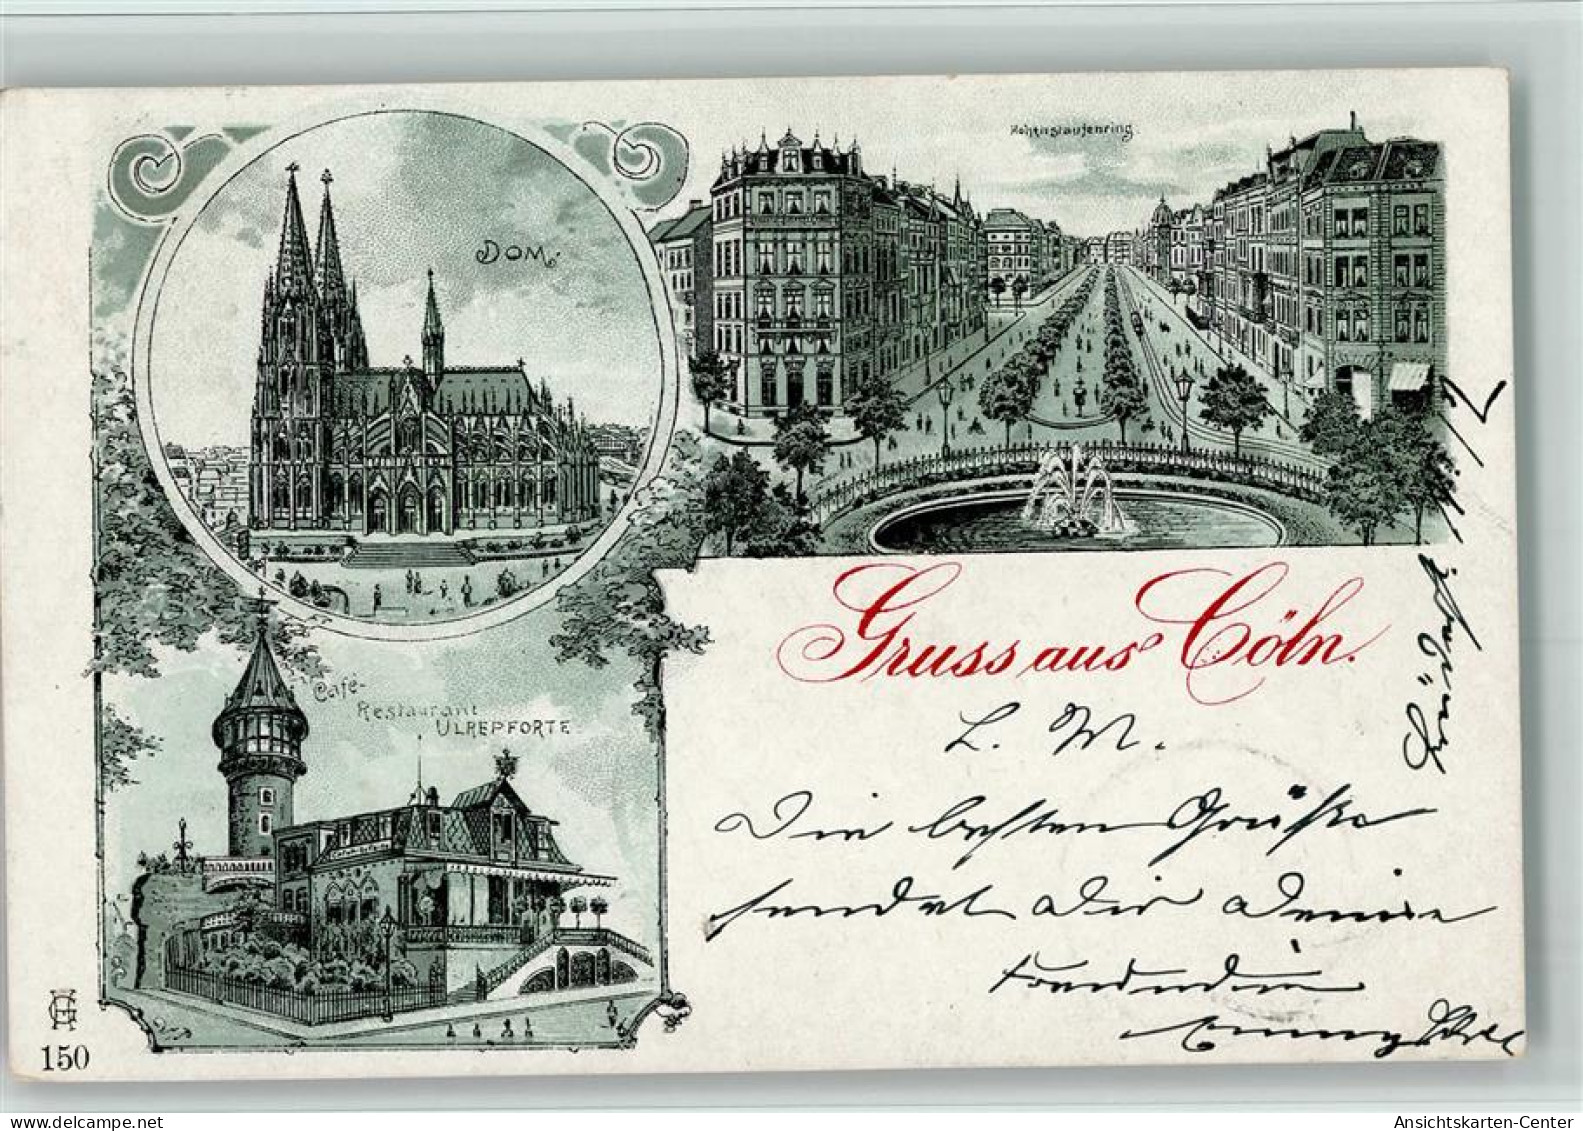 DOM.
Hohenstaufenring.
Café-
Restaurant
ULREPFORTE
Gruss aus Cöln.
L. M.
Die besten Grüße
sendet Dir Deine
Freundin
Emmy
GH
150
Ansichtskarten-Center